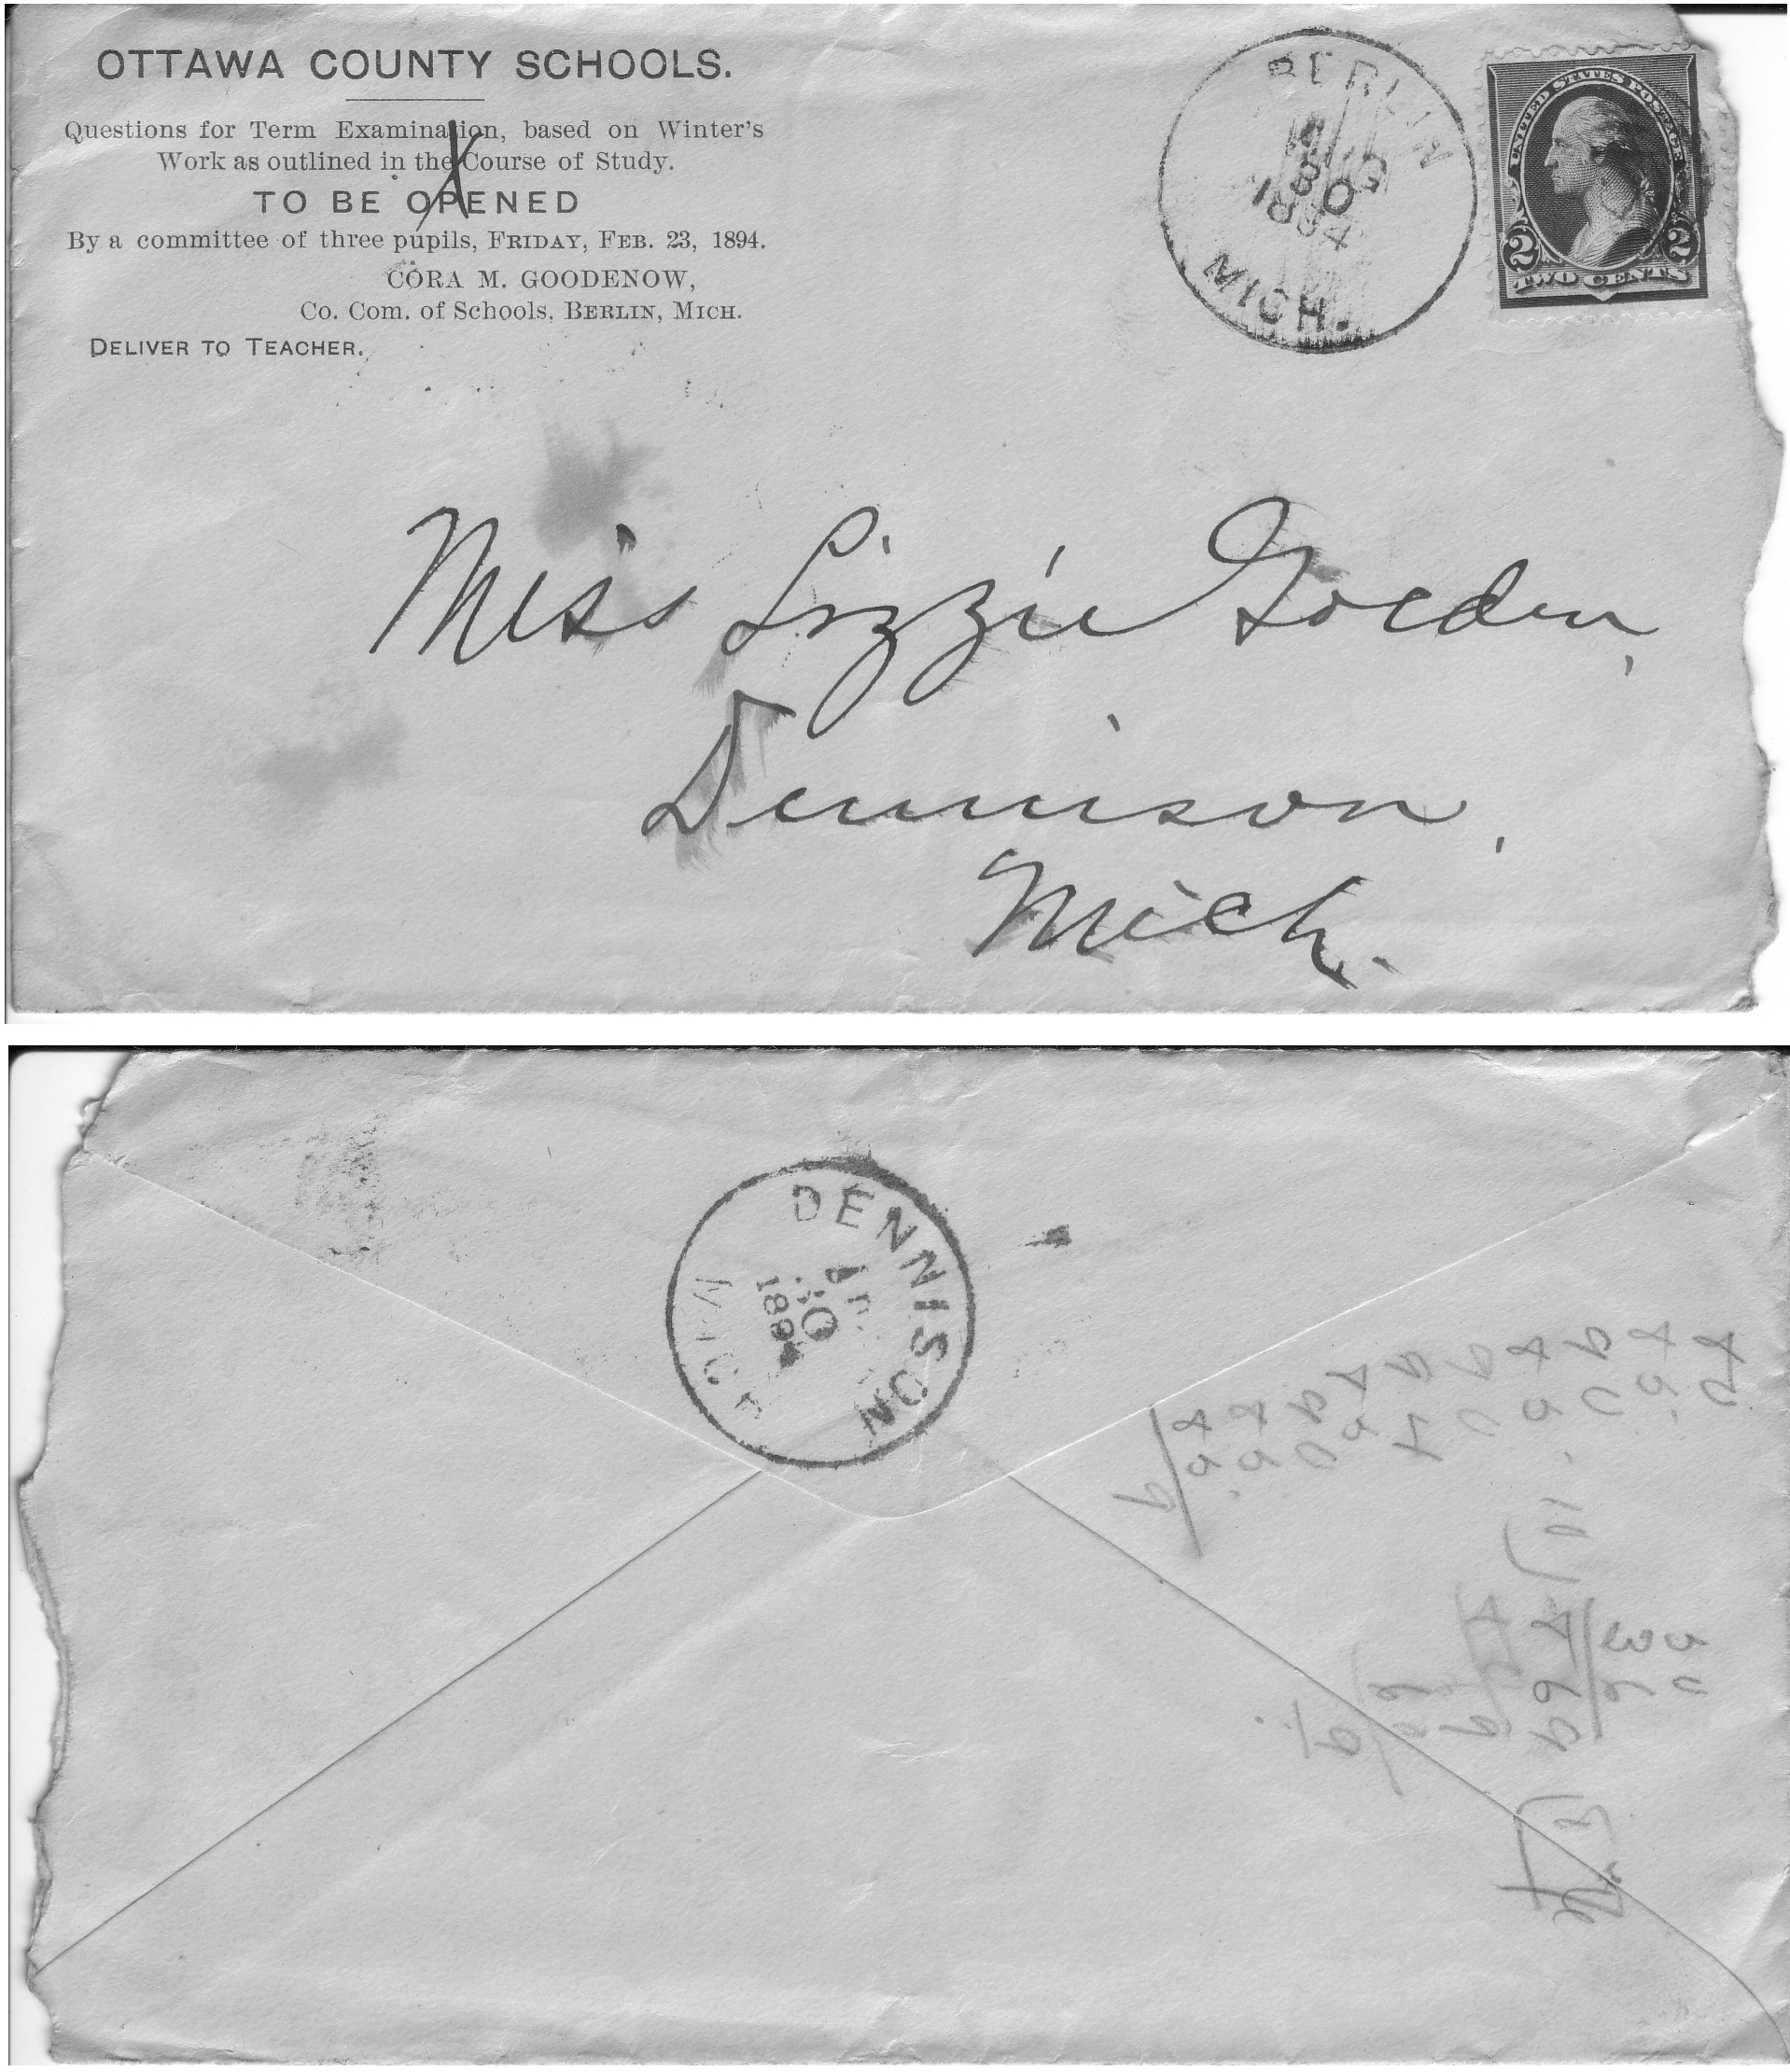 OTTAWA COUNTY SCHOOLS.
Questions for Term Examination, based on Winter's
Work as outlined in the Course of Study.
TO BE OPENED
By a committee of three pupils, FRIDAY, FEB. 23, 1894.
CORA M. GOODENOW,
Co. Com. of Schools, BERLIN, MICH.
DELIVER TO TEACHER.
BERLIN
30
1894
MICH.
UNITED STATES POSTAGE
2 2
TWO CENTS
Miss Lizzie Golden,
Dennison,
Mich.
DENNISON
30
1894
MICH